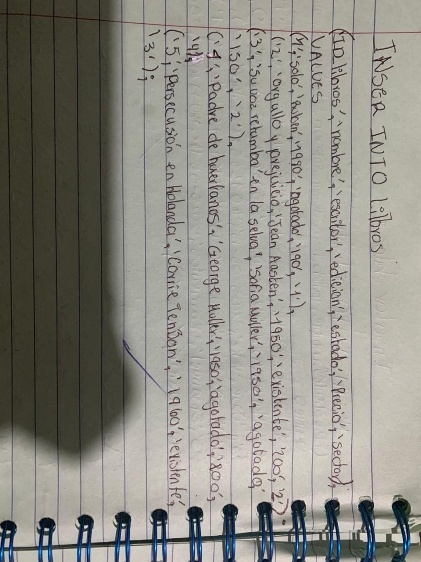 INSER INTO Libros
(ID libros', 'nombre', 'escritor', 'edicion', 'estado', 'Precio', 'sector),
VALUES
('1', 'solo', 'Ruben', '1990', 'agotado', '190', '1'),
('2', 'orgullo y prejuicio', 'Jean Austen', '1950', 'existente', '200', '2'),
('3', 'su voz retumba en la selva', 'Sofia Muller', '1950', 'agotado',
'150', '2'),
('4', 'Padre de huerfanos', 'George Muller', '1950', 'agotado', '800',
'4'),
('5', 'Persecusión en Holanda', 'Corrie Ten Bon', '1960', 'existente',
'3');